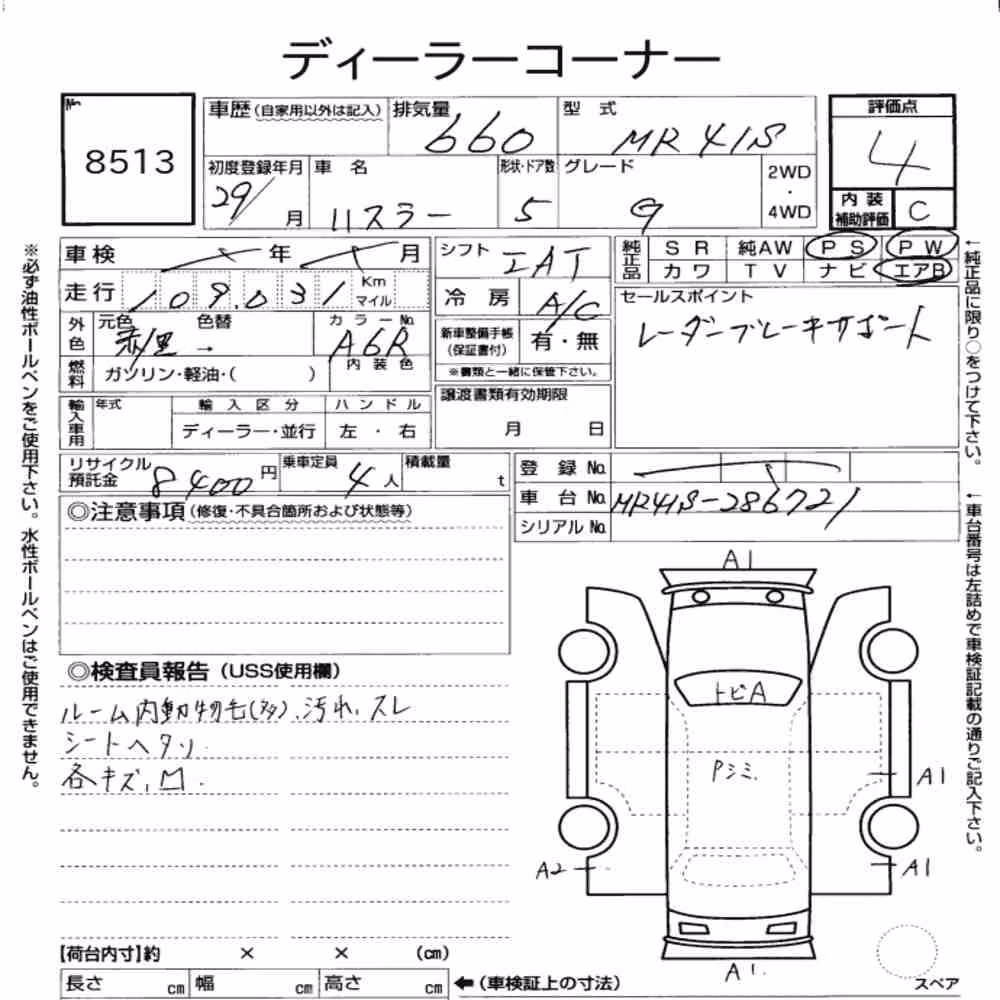 ディーラーコーナー
No. 8513
車歴(自家用以外は記入) 排気量 660 型式 MR41S 評価点 4
初度登録年月 29/ 月 車名 ハスラー 形状・ドア数 5 グレード G 2WD・4WD 内装補助評価 C
車検 年 月 シフト IAT 純正品 SR 純AW PS PW
カワ TV ナビ エアB
走行 109,031 Km マイル 冷房 A/C セールスポイント
レーダーブレーキサポート
外色 元色 赤/黒 → 色替 カラーNo. A6R 新車整備手帳(保証書付) 有・無
内装色 ※書類と一緒に保管下さい。
燃料 ガソリン・軽油・( )
譲渡書類有効期限 月 日
輸入車用 年式 輸入区分 ハンドル
ディーラー・並行 左・右
リサイクル預託金 8400円 乗車定員 4人 積載量 t
登録No.
車台No. MR41S-286721
シリアルNo.
◎注意事項(修復・不具合箇所および状態等)
◎検査員報告(USS使用欄)
ルーム内動物毛(多)、汚れ、スレ
シートヘタリ.
各キズ、凹.
【荷台内寸】約 × × (cm)
長さ cm 幅 cm 高さ cm ←(車検証上の寸法)
A1
トビA
Pシミ.
A1
A2
A1
A1.
スペア
※必ず油性ボールペンをご使用下さい。水性ボールペンはご使用できません。
←純正品に限り○をつけて下さい。
←車台番号は左詰めで車検証記載の通りご記入下さい。